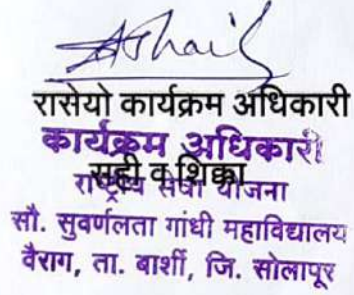 रासेयो कार्यक्रम अधिकारी
कार्यक्रम अधिकारी
सही व शिक्का
राष्ट्रीय सेवा योजना
सौ. सुवर्णलता गांधी महाविद्यालय
वैराग, ता. बार्शी, जि. सोलापूर